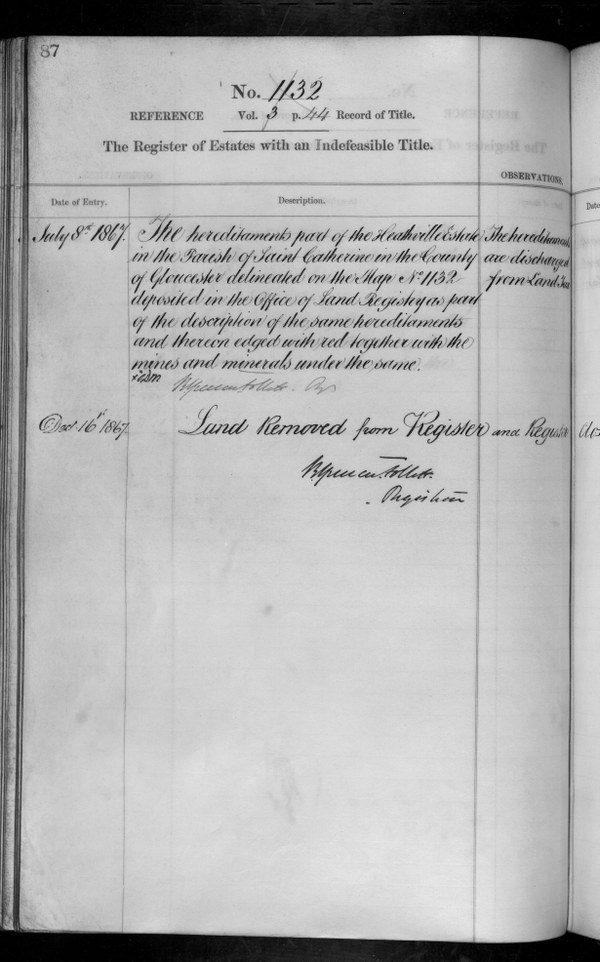 87
No. 1132
REFERENCE Vol. 3 p. 44 Record of Title.
The Register of Estates with an Indefeasible Title.
OBSERVATIONS.
Date of Entry. Description. Date
July 8th 1867. The hereditaments part of the Heathville Estate The hereditaments
in the Parish of Saint Catherine in the County are discharged
of Gloucester delineated on the Map No 1132 from Land Tax
deposited in the Office of Land Registry as part
of the description of the same hereditaments
and thereon edged with red together with the
mines and minerals under the same.
Dec 16th 1867. Land Removed from Register and Register clo
Registrar